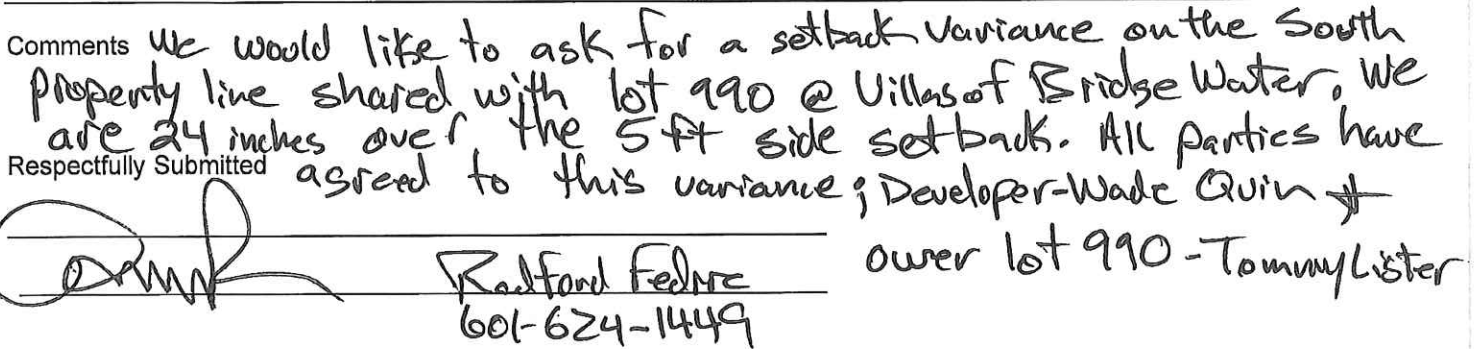 Comments We would like to ask for a setback variance on the South
property line shared with lot 990 @ Villas of Bridge Water. We
are 24 inches over the 5 ft side setback. All parties have
Respectfully Submitted agreed to this variance; Developer-Wade Quin +
ower lot 990 - Tommy Lister
Radford
601-624-1449